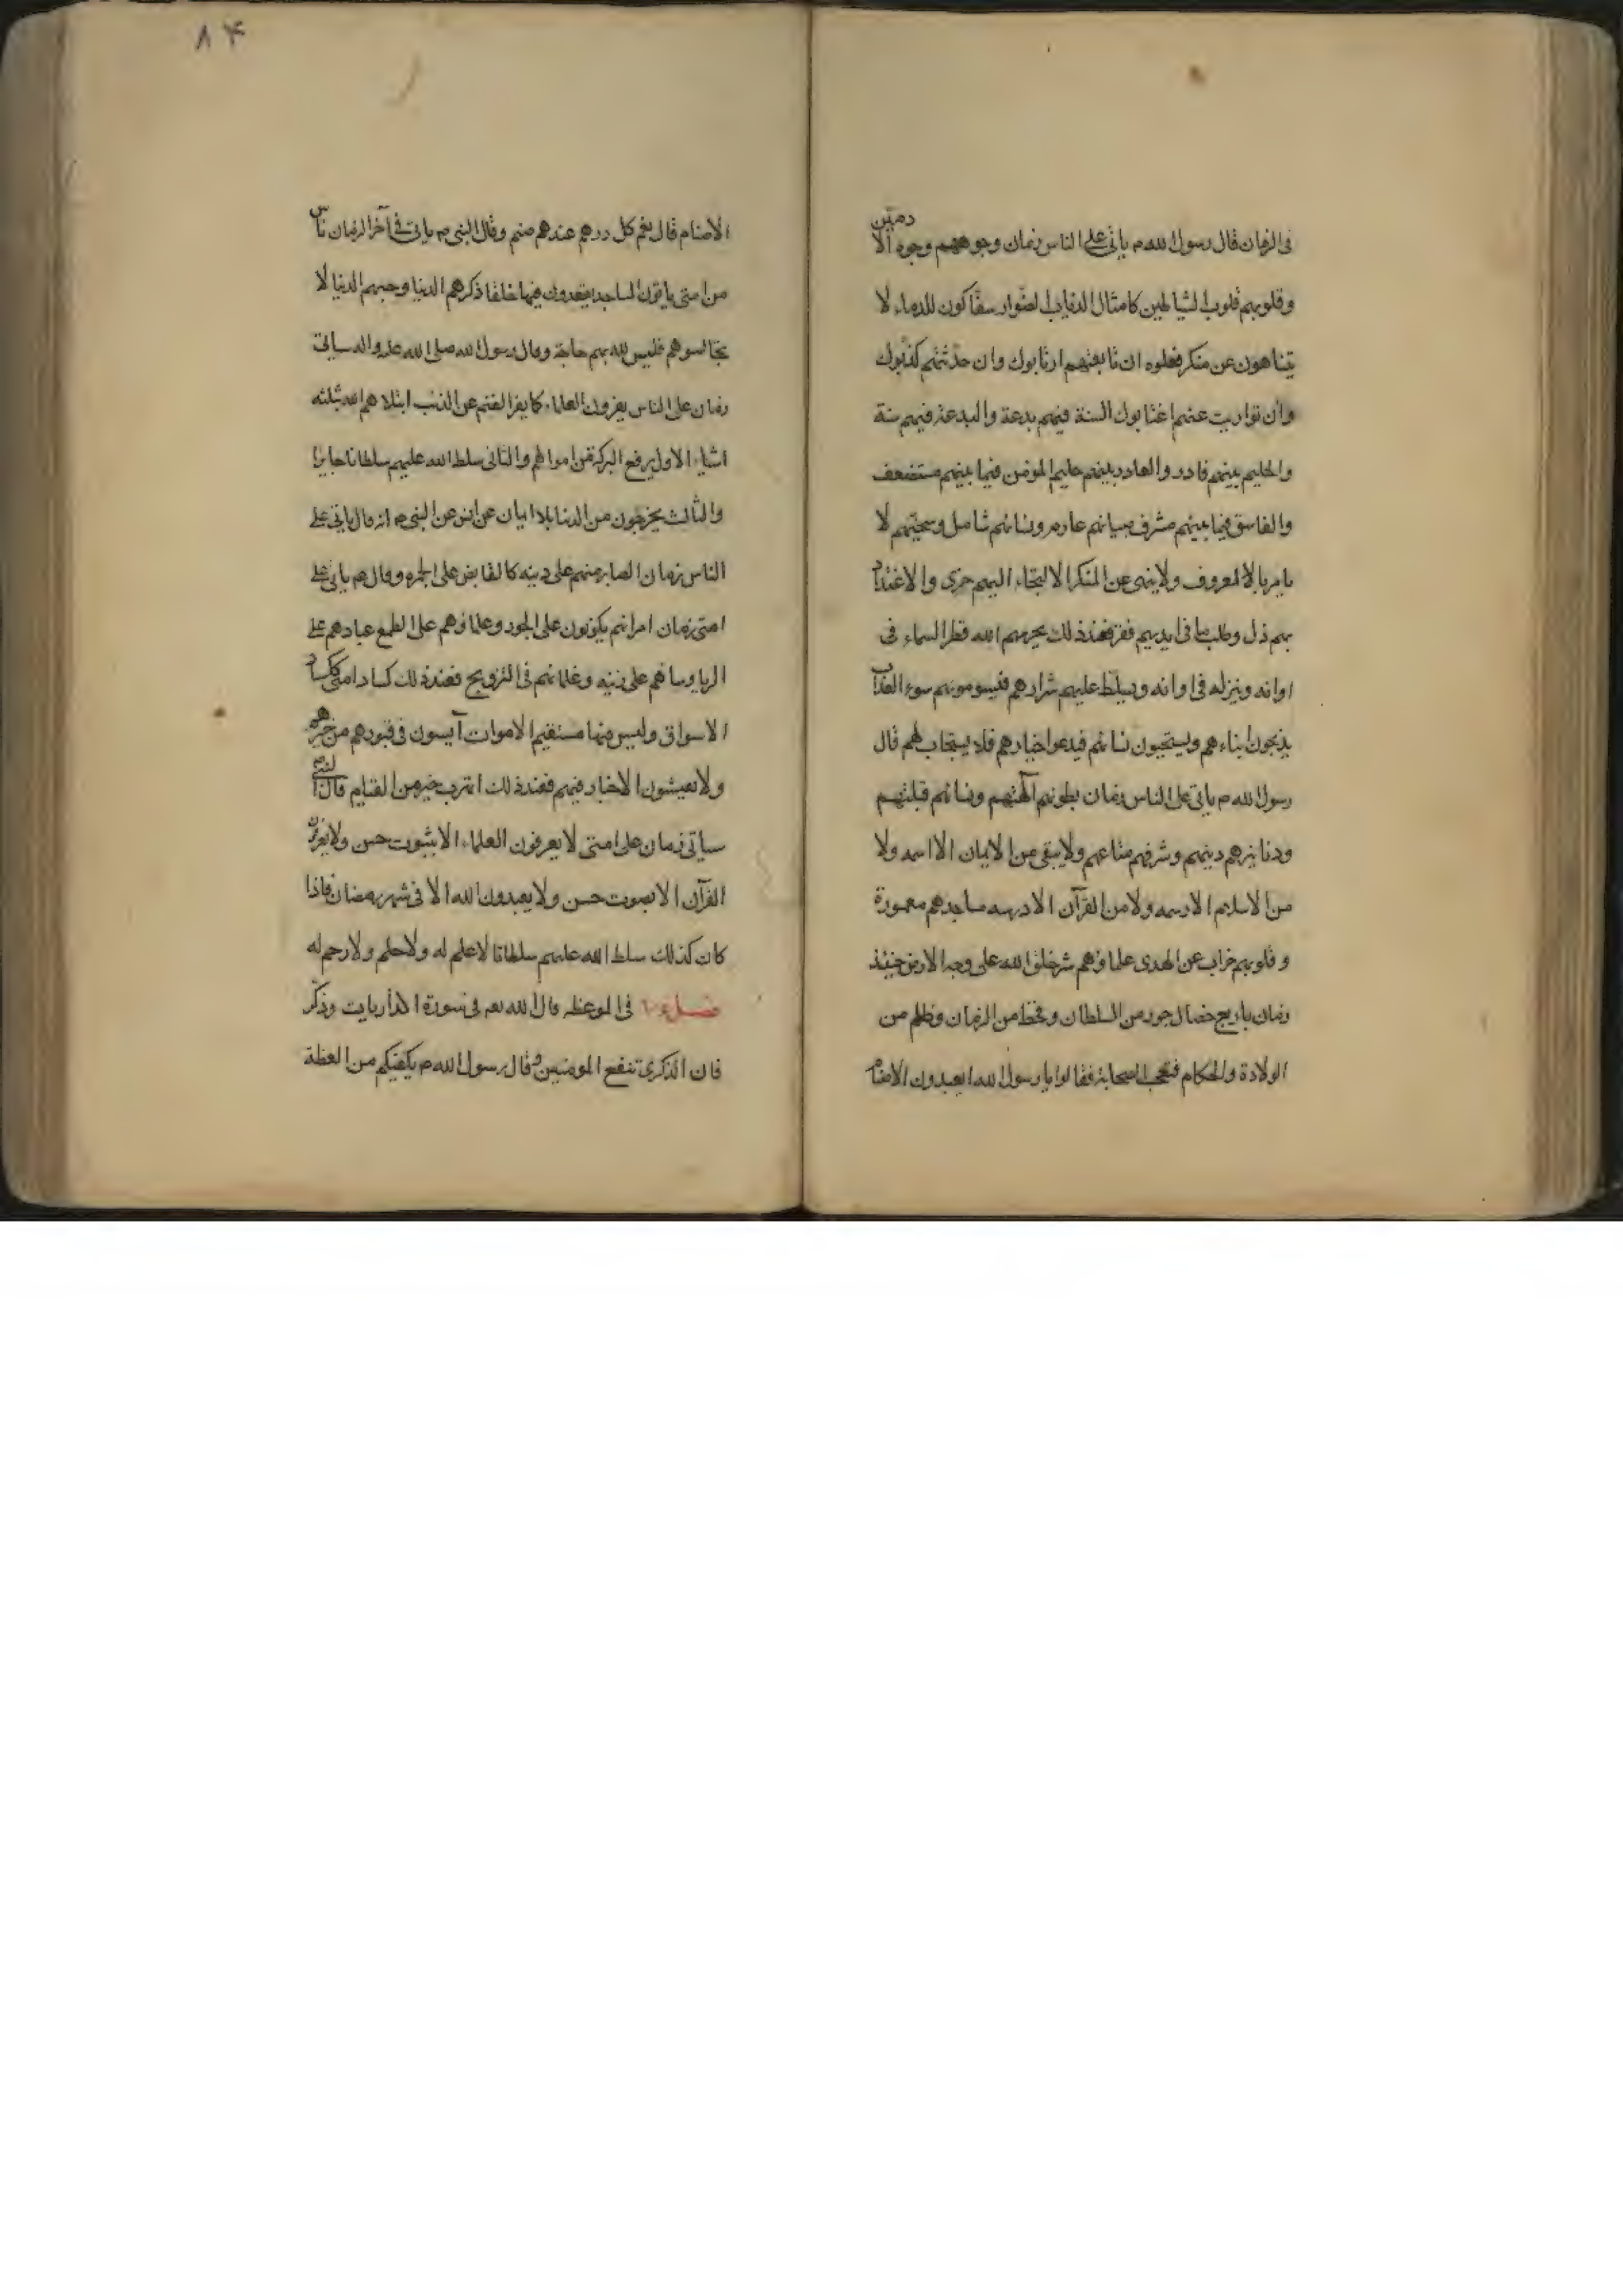 في الزمان قال رسول الله ص ياتي على الناس زمان وجوههم وجوه الآدميّين
وقلوبهم قلوب الشياطين كامثال الذئاب الضوار سفّاكون للدماء لا
يتناهون عن منكر فعلوه ان تابعتهم ارتابوك وان حدّثتهم كذّبوك
وان تواريت عنهم اغتابوك السنة فيهم بدعة والبدعة فيهم سنة
والحليم بينهم غادر والغادر بينهم حليم المؤمن فيما بينهم مستضعف
والفاسق فيما بينهم مشرف صبيانهم عارم ونسائهم شاطر وشيخهم لا
يامر بالمعروف ولا ينهى عن المنكر الالتجاء اليهم خزى والاعتداد
بهم ذل وطلب ما فى ايديهم فقر فعند ذلك يحرمهم الله قطر السماء فى
اوانه وينزله فى اوانه ويسلّط عليهم شرارهم فيسومونهم سوء العذاب
يذبحون ابناءهم ويستحيون نسائهم فيدعوا خيارهم فلا يستجاب لهم قال
رسول الله ص ياتى على الناس زمان بطونهم آلهتهم ونسائهم قبلتهم
ودنانيرهم دينهم وشرفهم متاعهم ولا يبقى من الايمان الا اسمه ولا
من الاسلام الا رسمه ولا من القرآن الا درسه مساجدهم معمورة
وقلوبهم خراب عن الهدى علماؤهم شر خلق الله على وجه الارض حينئذ
زمان باربع خصال جور من السلطان وقحط من الزمان وظلم من
الولاة والحكام فتعجب الصحابة فقالوا يا رسول الله ايعبدون الاصنام
الاصنام قال نعم كل درهم عندهم صنم وقال النبى ص ياتى فى آخر الزمان ناس
من امتى ياتون المساجد يقعدون فيها حلقا ذكرهم الدنيا وحبهم الدنيا لا
تجالسوهم فليس لله بهم حاجة وقال رسول الله صلى الله عليه واله سياتى
زمان على الناس يفرون العلماء كما يفر الغنم عن الذئب ابتلاهم الله بثلثة
اشياء الاول يرفع البركة من اموالهم والثانى سلط الله عليهم سلطانا جايرا
والثالث يخرجون من الدنيا بلا ايمان عن انس عن النبى ص انه قال ياتى على
الناس زمان الصابر منهم على دينه كالقابض على الجمرة وقال ص ياتى على
امتى زمان امرائهم يكونون على الجور وعلماؤهم على الطمع عبادهم على
الريا وتجارهم على ونسائهم على زينه وغلمانهم فى التزويج فعند ذلك كساد امتى ككساد
الاسواق وليس فيها مستقيم الاموات آيسون فى قبورهم من خيرهم
ولا يعيشون الاخيار فيهم فعند ذلك الهرب خير من القيام قال النبى
سياتى زمان على امتى لا يعرفون العلماء الا بثوب حسن ولا يعرفون
القرآن الا بصوت حسن ولا يعبدون الله الا فى شهر رمضان فاذا
كان كذلك سلط الله عليهم سلطانا لا علم له ولا حلم ولا رحم له
فصل فى الموعظه قال الله تعه فى سورة الذاريات وذكر
فان الذكرى تنفع المومنين وقال رسول الله ص يكفيكم من العظة
٨٤